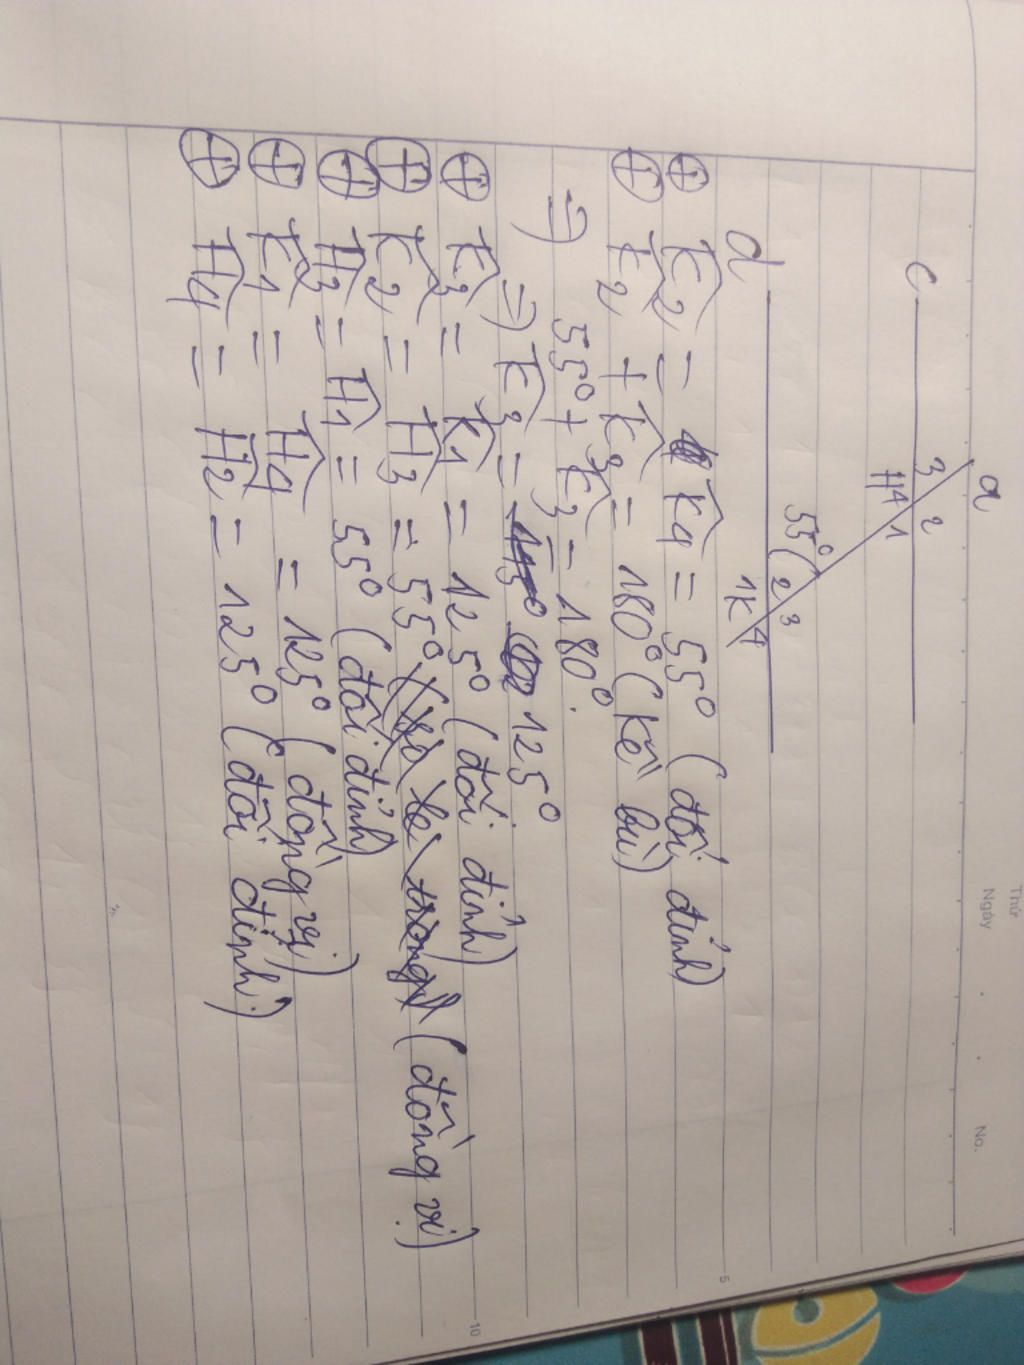 Thứ
Ngày
No.
a
c
3 2
H 4 1
55°
d
2 3
1 K 4
⊕ K̂2 = K̂4 = 55° (đối đỉnh)
⊕ K̂2 + K̂3 = 180° (kề bù)
=) 55° + K̂3 = 180°.
=) K̂3 = 125°
⊕ K̂3 = K̂1 = 125° (đối đỉnh)
⊕ K̂2 = Ĥ3 = 55° (so le trong) (đồng vị)
⊕ Ĥ3 = Ĥ1 = 55° (đối đỉnh)
⊕ K̂1 = Ĥ4 = 125° (đồng vị)
⊕ Ĥ4 = Ĥ2 = 125° (đối đỉnh)
5
10